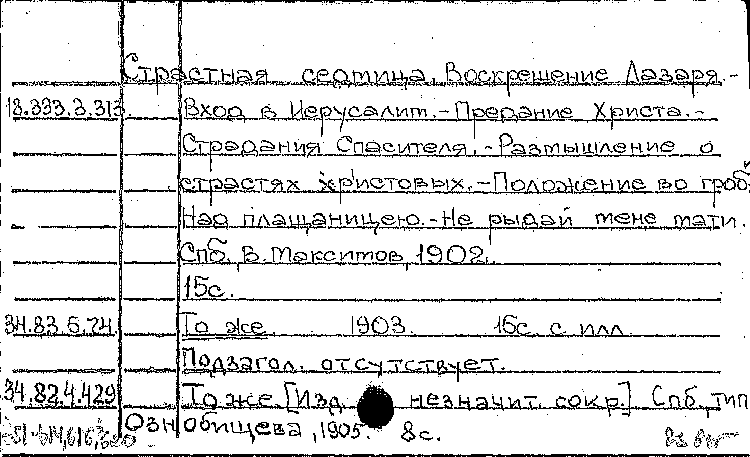 Страстная седмица. Воскрешение Лазаря.-
18.333.3.313. Вход в Иерусалим.-Предание Христа.-
Страдания Спасителя.-Размышление о
страстях христовых.-Положение во гроб.
Над плащаницею.-Не рыдай мене мати.
Спб., В. Максимов, 1902.
15с.
34.83.5.74. То же 1903. 16с. с илл.
Подзагол. отсутствует.
34.82.4.429 То же. [Изд. незначит. сокр.] Спб., тип
Ознобищева, 1905. 8с.